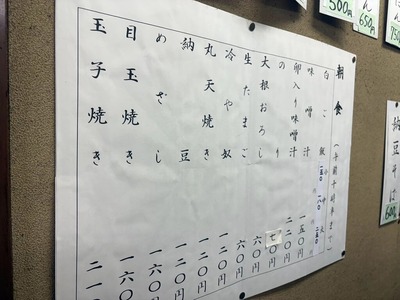 朝食(午前十時半まで)
白ご飯 小 中 大
味噌汁 一五〇円
卵入り味噌汁 二二〇円
のり 七〇円
大根おろし 六〇円
生たまご 六〇円
冷やっ奴 一二〇円
丸天焼き 一二〇円
納豆 一二〇円
めざし 一六〇円
目玉焼き 一六〇円
玉子焼き 二一
500円
650円
750
納豆そば
600